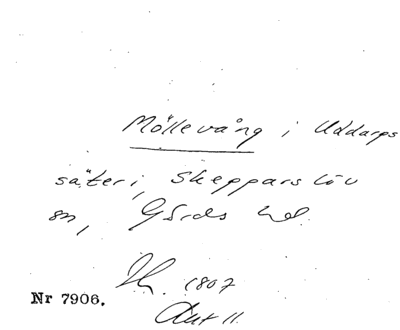 Möllevång i Uddarps
säteri, Skepparslöv
sn, Gärds hd.
Th. 1807
Nr 7906.
Aut 11.